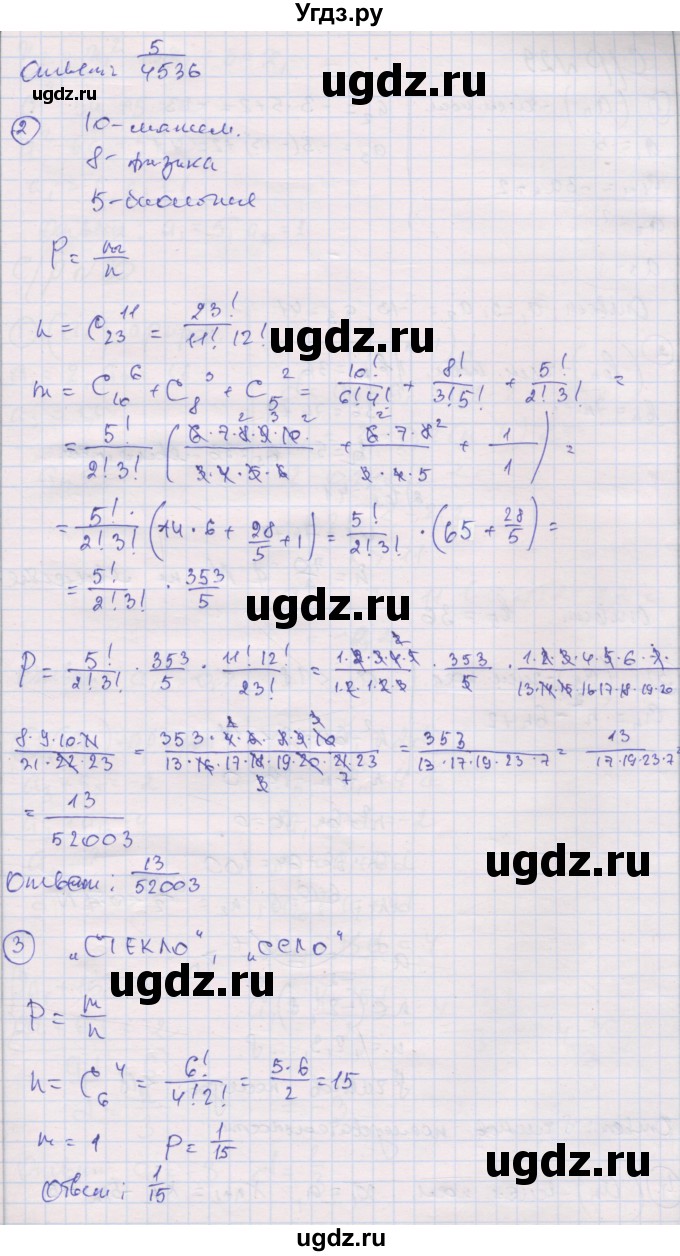 Угдз.ру
Ответ: 5/4536
ugdz.ru
ugdz.ru
② 10-матем.
8- физика
5-биология
ugdz.ru
P = m/n
n = C₂₃¹¹ = 23!/(11! 12!)
ugdz.ru
m = C₁₀⁶ + C₈³ + C₅² = 10!/(6!4!) + 8!/(3!5!) + 5!/(2!3!) =
= 5!/(2!3!) (6·7·8·9·10/(3·4·5·6) + 6·7·8/(3·4·5) + 1/1) =
= 5!·/(2!3!) (14·6 + 28/5 + 1) = 5!/(2!3!) · (65 + 28/5) =
ugdz.ru
= 5!/(2!3!) · 353/5
ugdz.ru
P = 5!/(2!3!) · 353/5 · 11! 12!/23! = 1·2·3·4·5/(1·2·1·2·3) · 353/5 · 1·2·3·4·5·6·7·/(13·14·15·16·17·18·19·20
8·9·10·11/(21·22·23) = 353·4·5·8·9·10/(13·16·17·18·19·20·21·23) = 353/(13·17·19·23·7) = 13/(17·19·23·7)
= 13/52003
ugdz.ru
Ответ: 13/52003
③ „СТЕКЛО“, „СЕЛО“
ugdz.ru
P = m/n
n = C₆⁴ = 6!/(4!2!) = 5·6/2 = 15
ugdz.ru
m = 1 P = 1/15
ugdz.ru
Ответ: 1/15
ugdz.ru